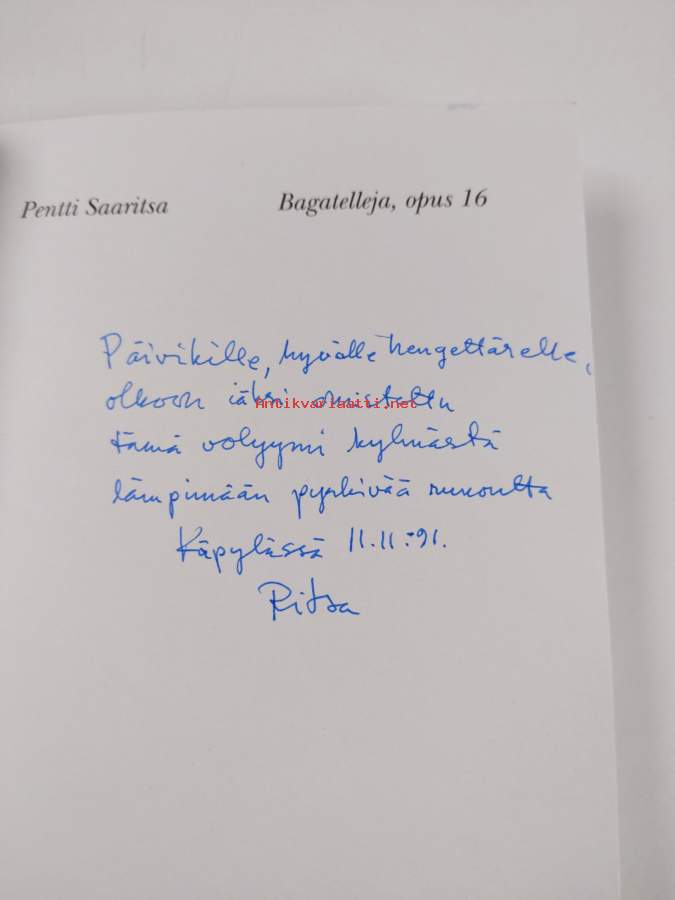 Pentti Saaritsa Bagatelleja, opus 16
Päivikille, hyvälle hengettärelle,
olkoon iäksi omistettu
Antikvariaatti.net
tämä volyymi kylmästä
lämpimään pyrkivää runoutta
Käpylässä 11.11.-91.
Ritsa